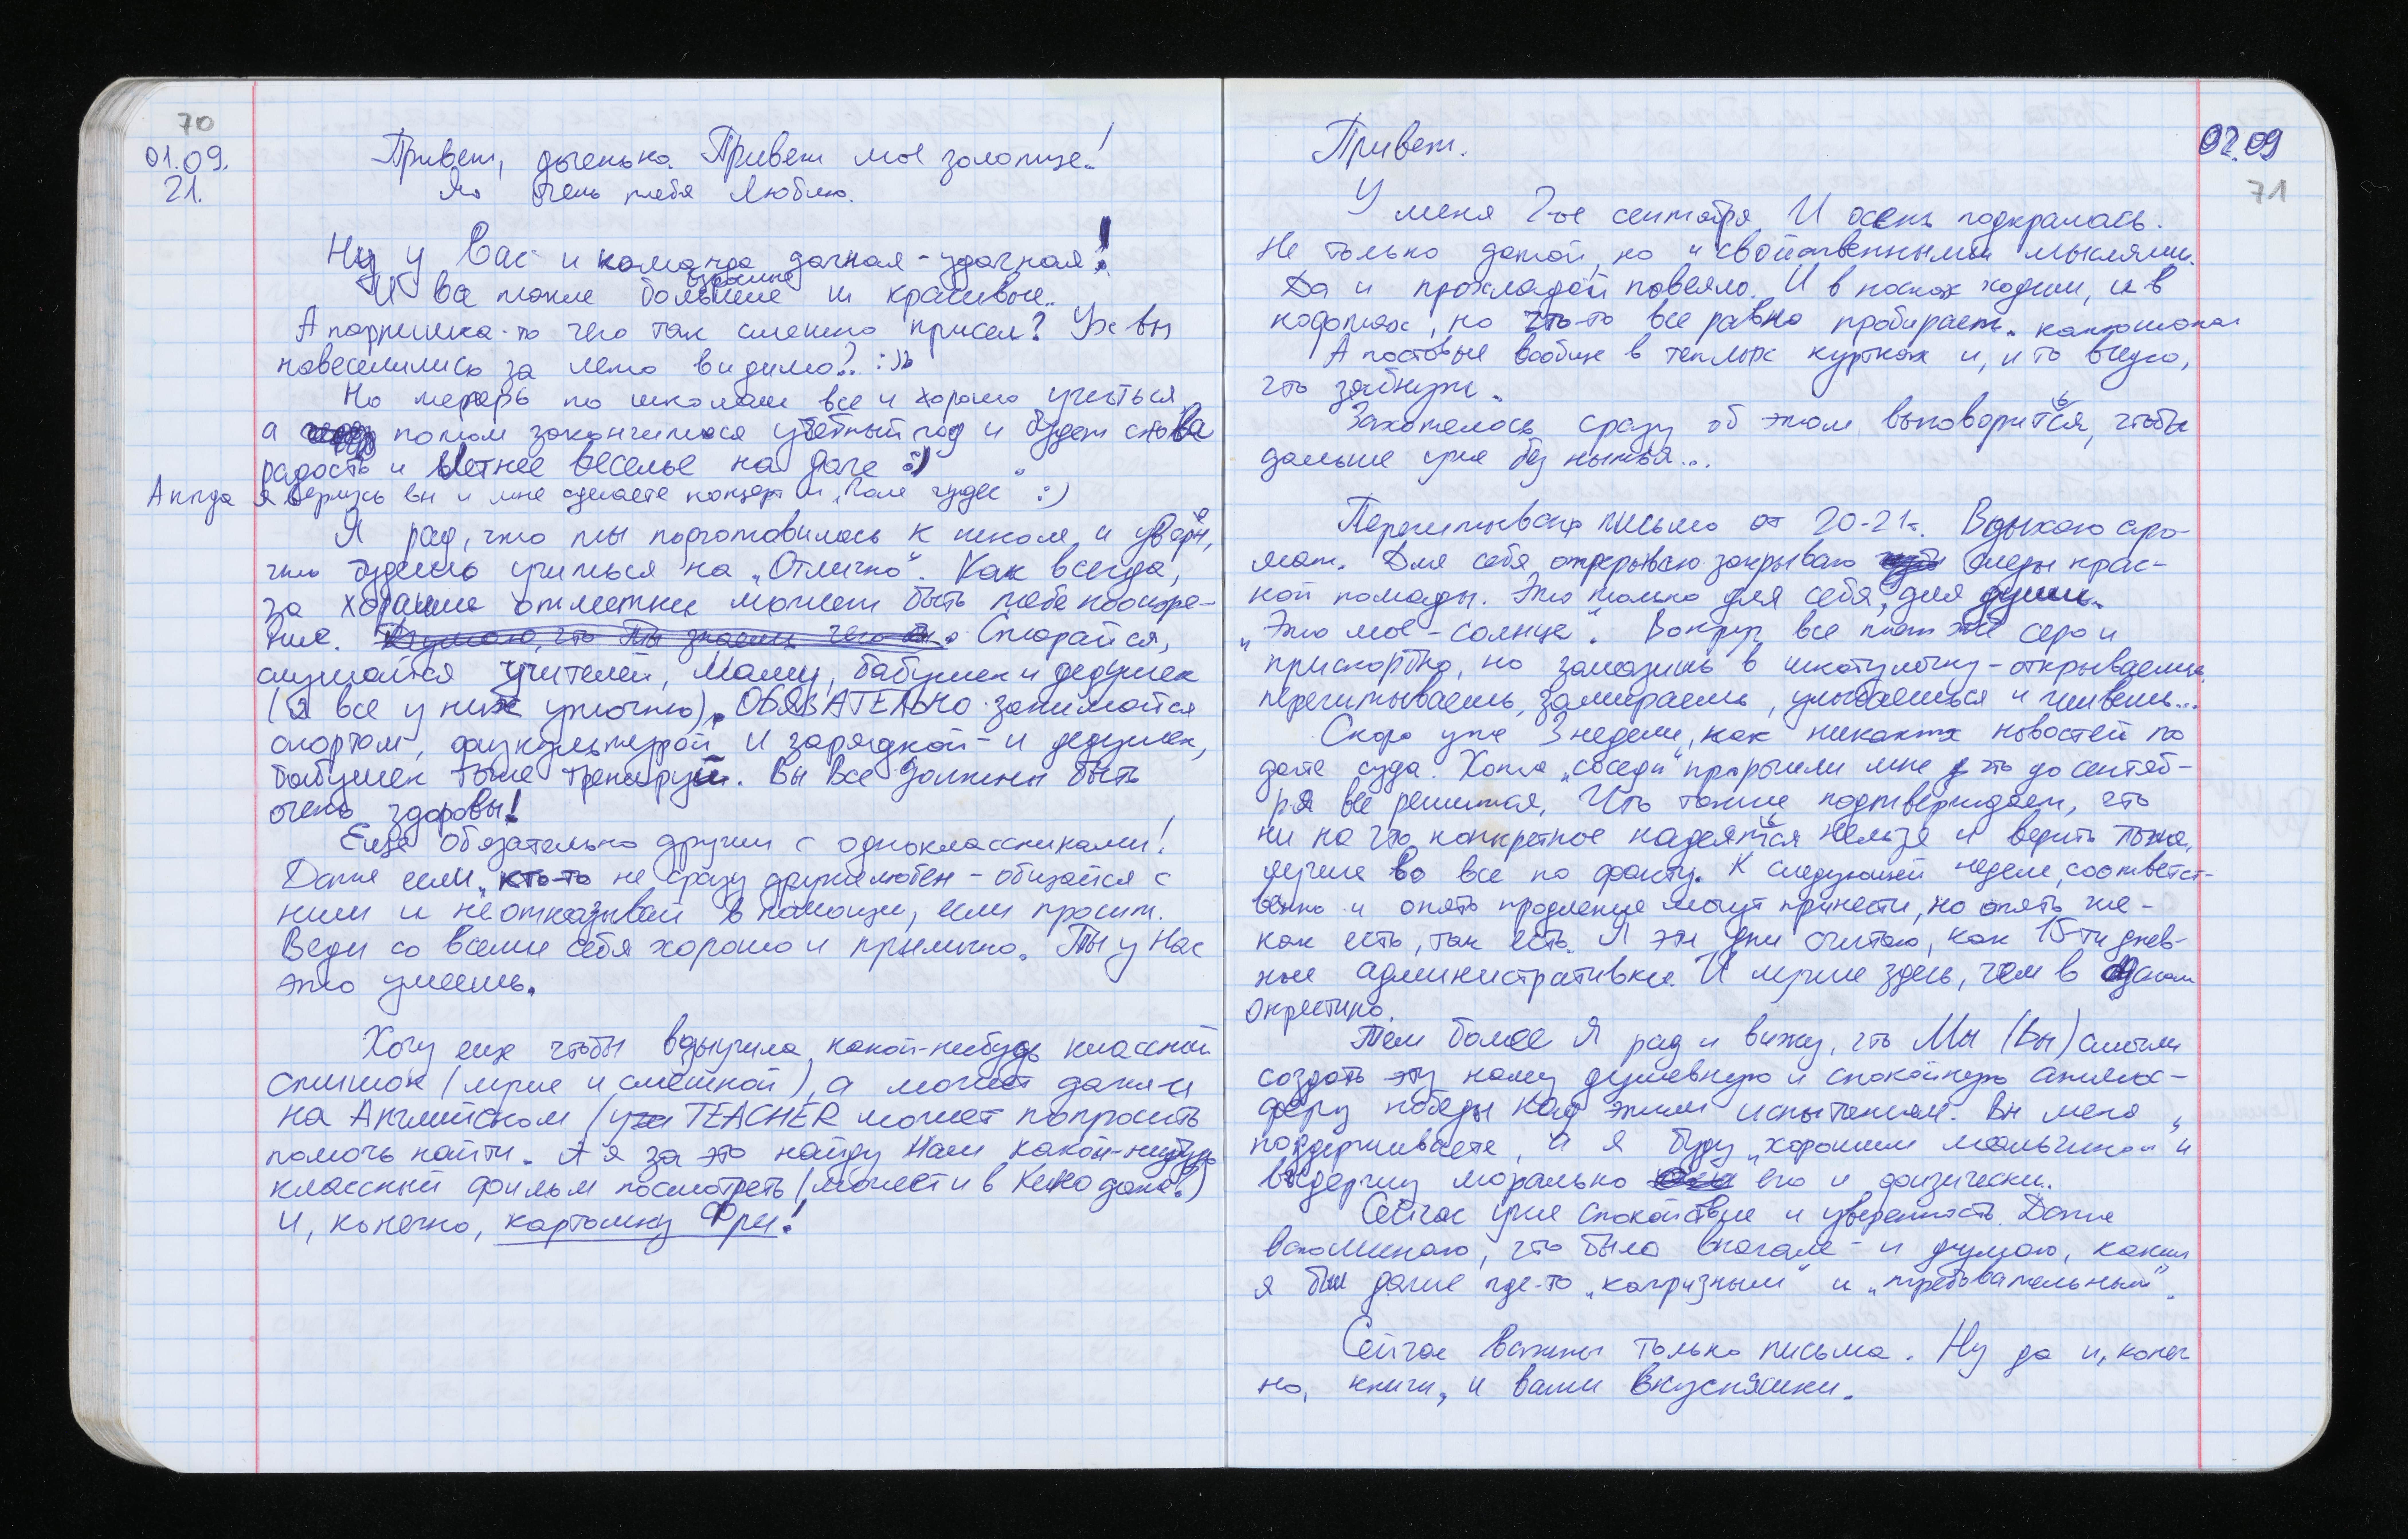 70
01.09.
21.
Привет, доченька. Привет мое золотце!
Я очень тебя люблю.
Ну у Вас и команда дачная-удачная!
взрослые
И вы такие большие и красивые.
А парнишка-то чего так смешно присел? Уж вы
навеселились за лето видимо? :)
Но теперь по школам все и хорошо учиться,
а потом закончится учебный год и будет снова
радость и летнее веселье на даче :)
А когда я вернусь вы и мне сделаете концерт и „Поле чудес" :)
Я рад, что ты подготовилась к школе и уверен,
что будешь учиться на „Отлично". Как всегда,
за хорошие отметки может быть тебе поощре-
ние. Думаю, что ты знаешь чего. Старайся,
слушайся учителей, Маму, бабушек и дедушек
(я все у них уточню). ОБЯЗАТЕЛЬНО занимайся
спортом, физкультурой и зарядкой - и дедушек,
бабушек тоже тренируй. Вы все должны быть
очень здоровы!
Еще обязательно дружи с одноклассниками!
Даже если кто-то не сразу дружелюбен - общайся с
ним и не отказывай в помощи, если просит.
Веди со всеми себя хорошо и прилично. Ты у Нас
это умеешь.
Хочу еще чтобы выучила какой-нибудь классный
стишок (лучше и смешной), а может даже и
на Английском (уже TEACHER может попросить
помочь найти. А я за это найду Нам какой-нибудь
классный фильм посмотреть (может и в Кино даже)
и, конечно, картошку Фри!
02.09
71
Привет.
У меня 2-ое сентября И осень подкралась.
Не только датой, но и свойственными мыслями.
Да и прохладой повеяло. И в носках ходим, и в
кофтах, но что-то все равно пробирает.
А постовые вообще в теплых куртках и, и то видно,
что зябнут.
Захотелось сразу об этом выговориться, чтобы
дальше уже без нытья...
Перечитываю письмо от 20-21г. Вдыхаю аро-
мат. Для себя открываю закрываю следы крас-
ной помады. Это только для себя, для души.
„Это мое - солнце". Вокруг все серо и
прискорбно, но залазишь в шкатулочку - открываешь,
перечитываешь, замираешь, улыбаешься и живешь...
Скоро уже 3 недели, как никаких новостей по
дате суда. Хотя „соседи" пророчили мне что до сентяб-
ря все решится, Что также подтверждает, что
ни на что конкретное надеяться нельзя и верить тоже,
лучше во все по факту. К следующей неделе, соответст-
венно и опять продление могут принести, но опять же -
как есть, так есть. Я эти дни считаю, как 15-ти днев-
ные административки. И лучше здесь, чем в
Окрестино.
Тем более Я рад и вижу, что Мы (Вы) смогли
создать эту нашу душевную и спокойную атмос-
феру победы над этим испытанием. Вы меня
поддерживаете, и я буду „хорошим мальчиком" и
выдержу морально его и физически.
Сейчас уже спокойствие и уверенность. Даже
вспоминаю, что было вначале - и думаю, каким
я был даже где-то „капризным" и „требовательным".
Сейчас важны только письма. Ну да и, конеч
но, книги, и ваши вкусняшки.